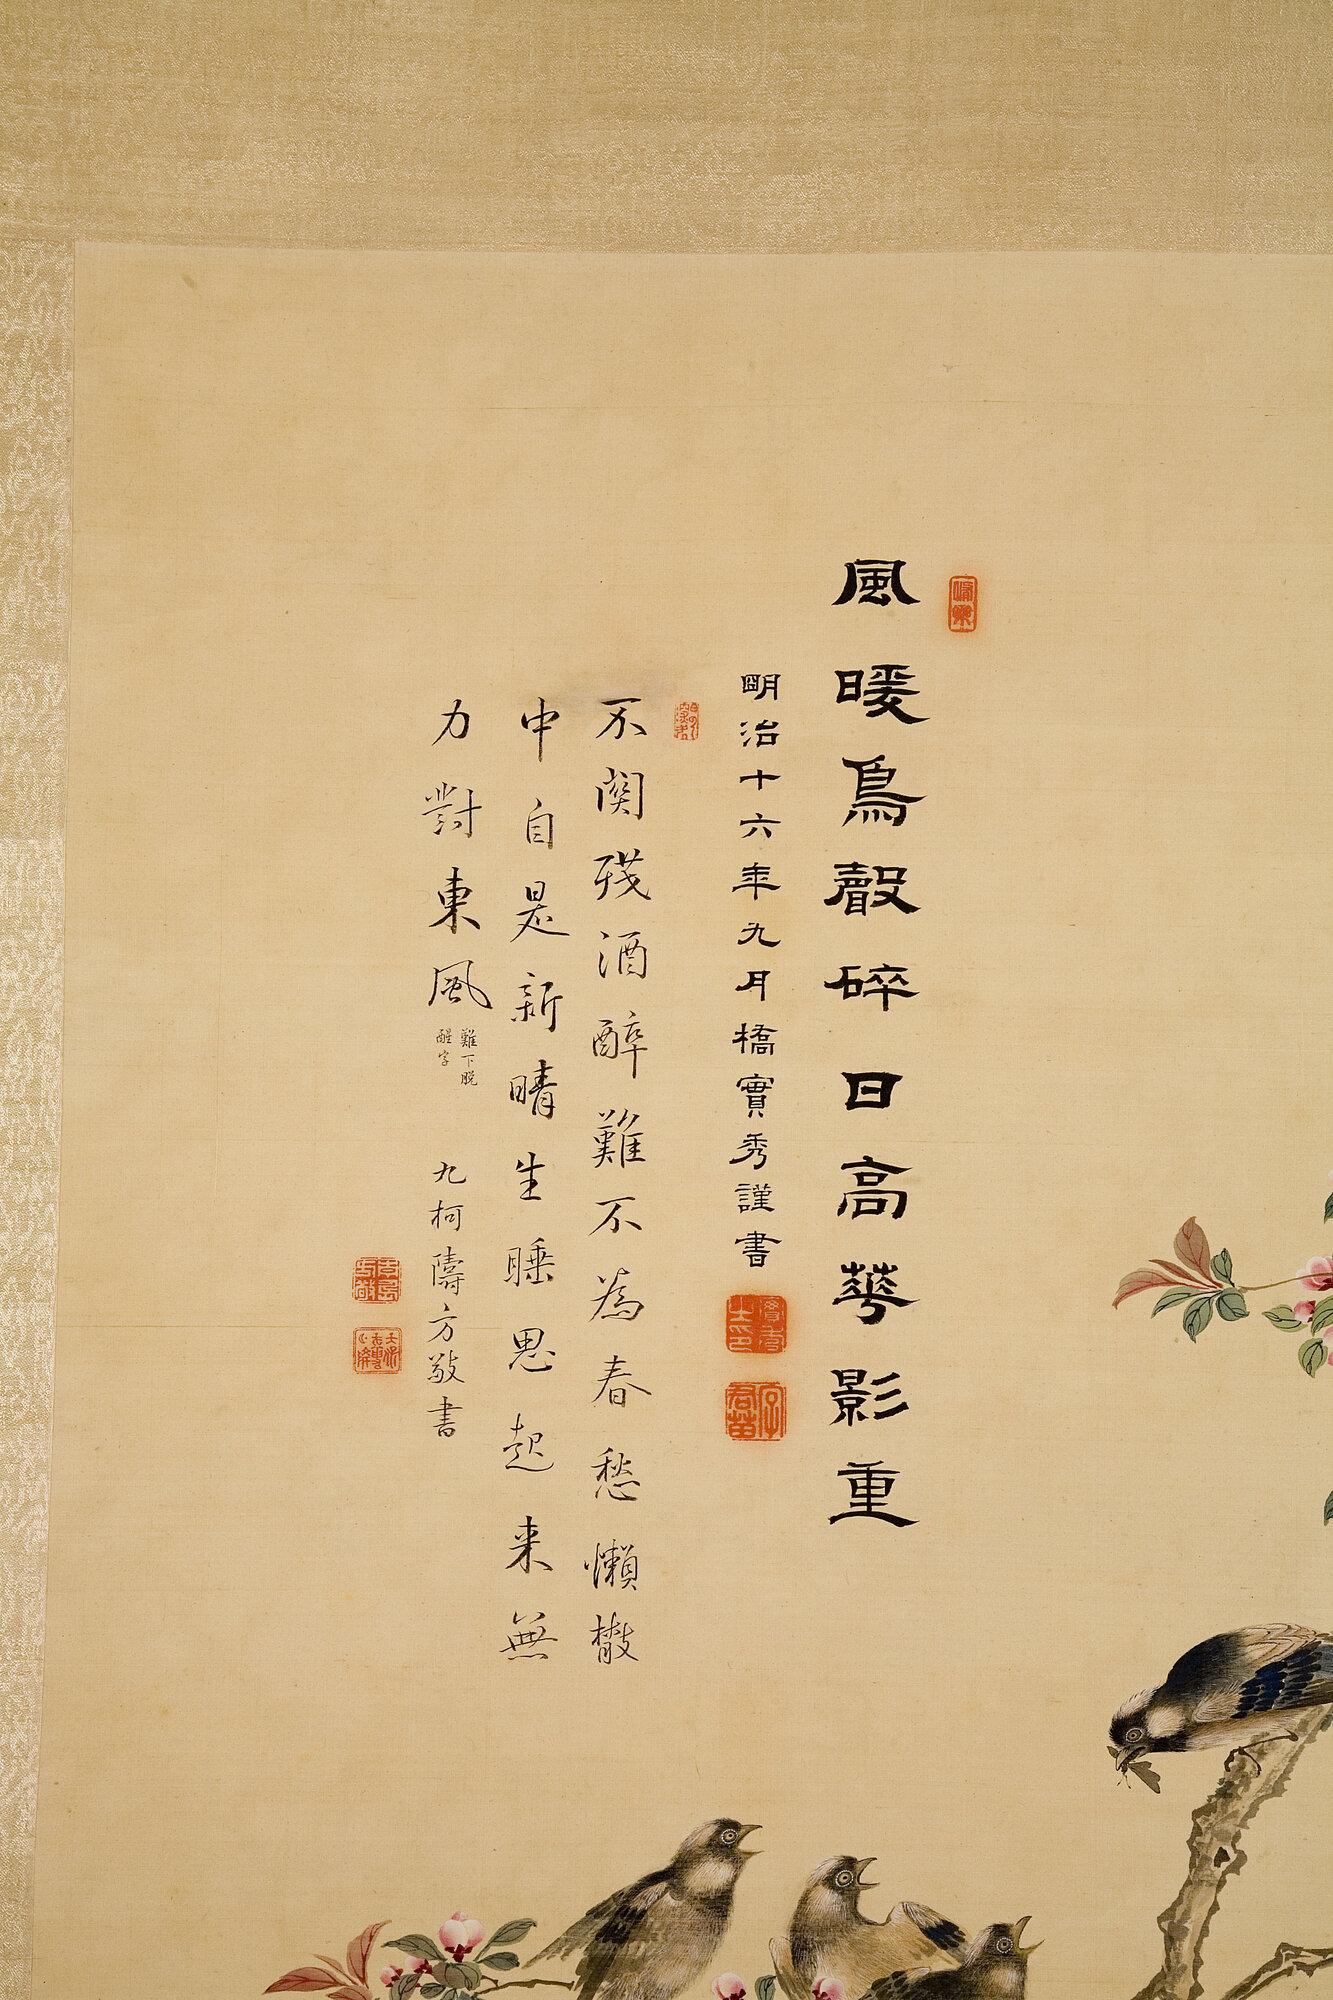 風暖鳥聲碎日高華影重
明治十六年九月橋實秀謹書
不関残酒醉難不為春愁懶散
中自是新晴生睡思起来無
力對東風
難下脱
醒字
九柯隯方敬書